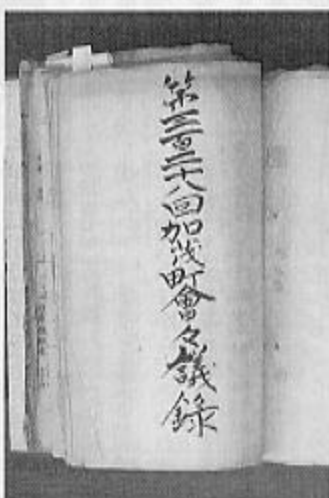 第三百二十八回加茂町會々議録